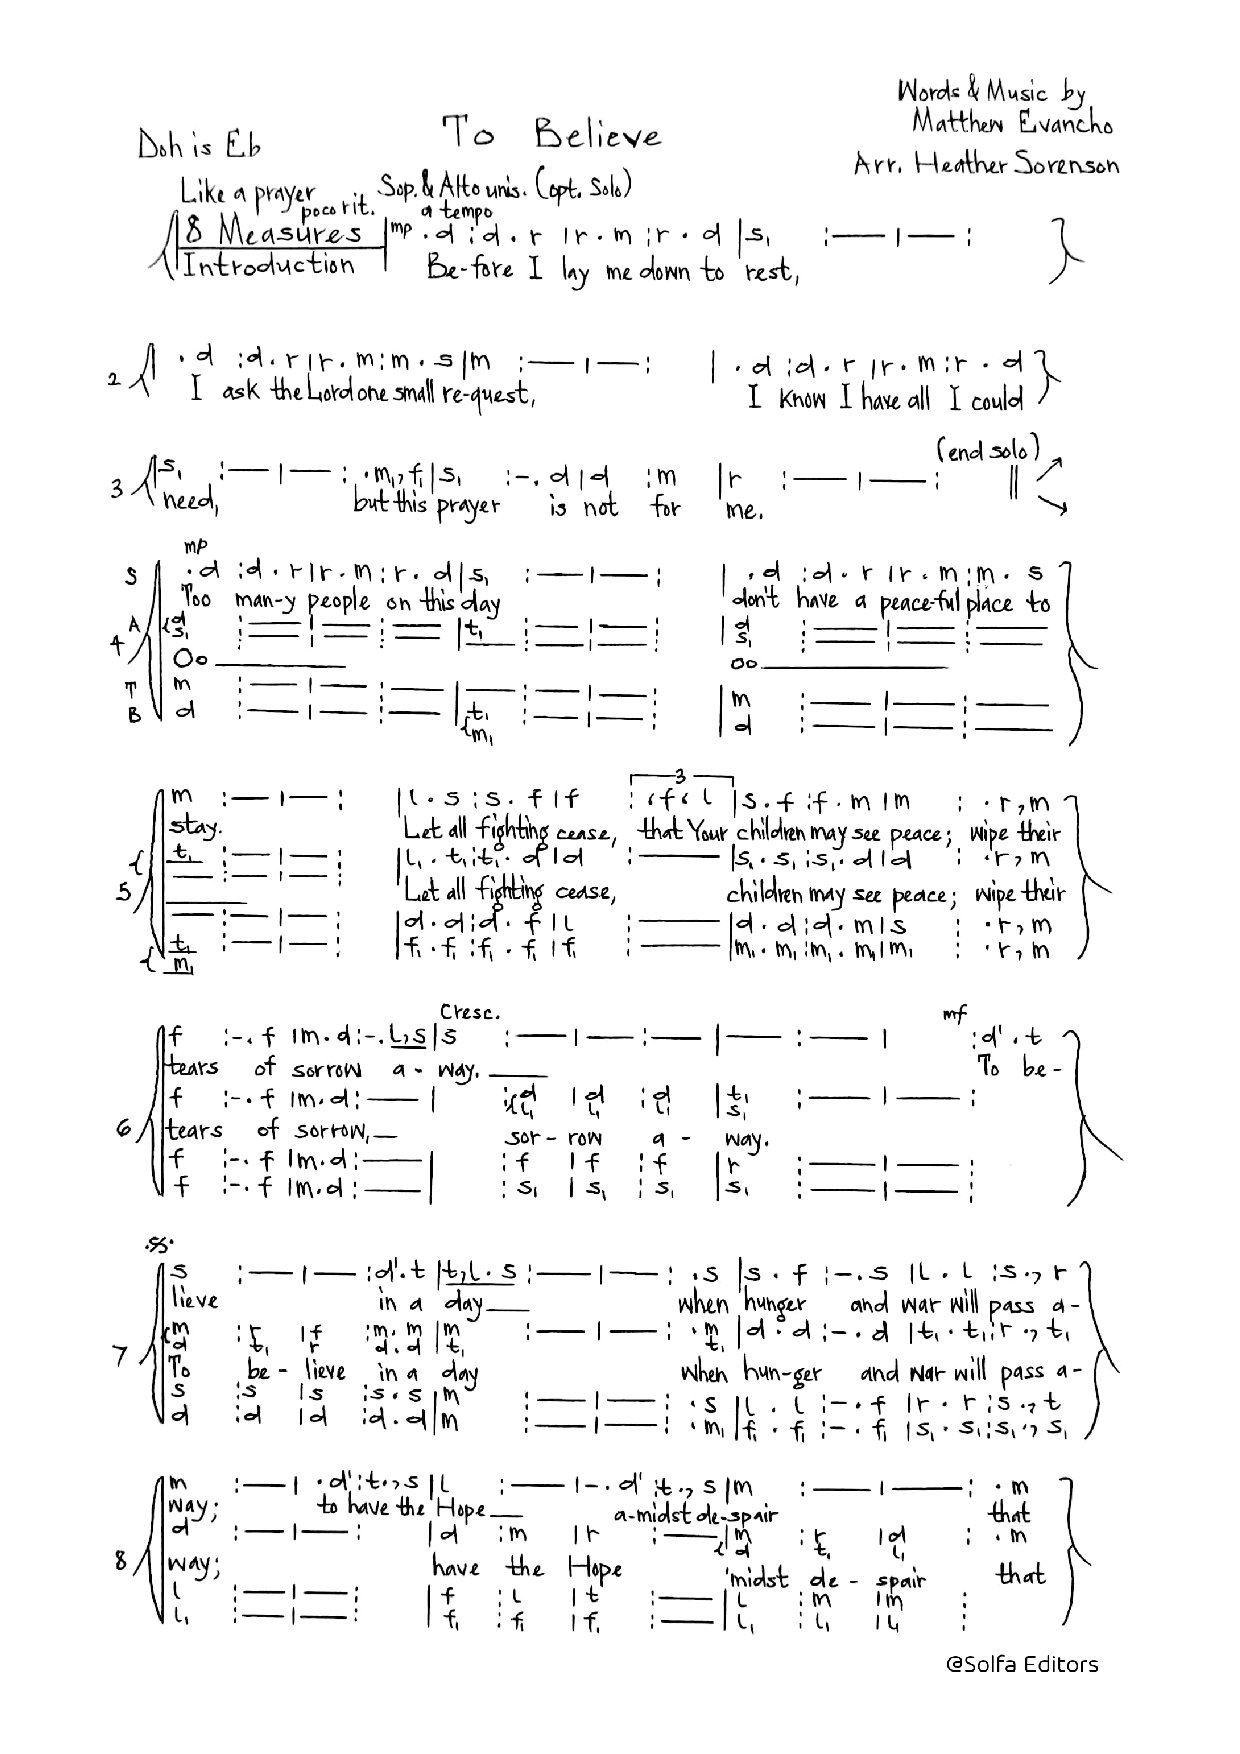 Words & Music by
Matthew Evancho
Arr. Heather Sorenson
To Believe
Doh is Eb
Like a prayer
poco rit.
Sop. & Alto unis. (opt. Solo)
a tempo
8 Measures |mp . d :d . r |r . m :r . d |s₁ :— | — :
Introduction
Be-fore I lay me down to rest,
2 . d :d . r |r . m :m . s |m :— | — : | . d :d . r |r . m :r . d
I ask the Lord one small re-quest, I know I have all I could
(end solo)
3 s₁ :— | — : . m₁, f₁ |s₁ :-. d |d :m |r :— | — : ||
need, but this prayer is not for me.
mp
S . d :d . r |r . m :r . d |s₁ :— | — : | . d :d . r |r . m :m . s
Too man-y people on this day don't have a peace-ful place to
A d :— | — :— |t₁ :— | — : |d :— | — :—
4 s₁ s₁
Oo Oo
T m :— | — :— | — :— | — : |m :— | — :—
B d :— | — :— |t₁ :— | — : |d :— | — :—
m₁
3
m :— | — : |l . s :s . f |f : ‹ f ‹ l |s . f :f . m |m : . r , m
stay. Let all fighting cease, that Your children may see peace; wipe their
t₁ :— | — : |l₁ . t₁ :t₁ . d |d :— |s₁ . s₁ :s₁ . d |d : . r , m
5 Let all fighting cease, children may see peace; wipe their
— :— | — : |d . d :d . f |l :— |d . d :d . m |s : . r , m
t₁ :— | — : |f₁ . f₁ :f₁ . f₁ |f₁ :— |m₁ . m₁ :m₁ . m₁ |m₁ : . r , m
m₁
Cresc. mf
f :-. f |m . d :-. l, s |s :— | — :— | — :— | :d' . t
tears of sorrow a - way. To be-
f :-. f |m . d :— | :d |d :d |t₁ :— | — :
l₁ l₁ l₁ s₁
6 tears of sorrow, sor - row a - way.
f :-. f |m . d :— | :f |f :f |r :— | — :
f :-. f |m . d :— | :s₁ |s₁ :s₁ |s₁ :— | — :
s :— | — :d' . t |t, l . s :— | — : . s |s . f :-. s |l . l :s ., r
lieve in a day when hunger and war will pass a-
m :r |f :m . m |m :— | — : . m |d . d :-. d |t₁ . t₁ :r ., t₁
d t₁ r d . d t₁ t₁
7 To be - lieve in a day when hun-ger and war will pass a-
s :s |s :s . s |m :— | — : . s |l . l :-. f |r . r :s ., t
d :d |d :d . d |m :— | — : . m₁ |f₁ . f₁ :-. f₁ |s₁ . s₁ :s₁ ., s₁
m :— | . d' :t ., s |l :— |-. d' :t ., s |m :— | — : . m
way; to have the Hope a-midst de-spair that
d :— | — : |d :m |r :— |m :r |d : . m
d t₁ l₁
8 way; have the Hope 'midst de - spair that
l :— | — : |f :l |t :— |l :m |m :
l₁ :— | — : |f₁ :f₁ |f₁ :— |l₁ :l₁ |l₁ :
@Solfa Editors